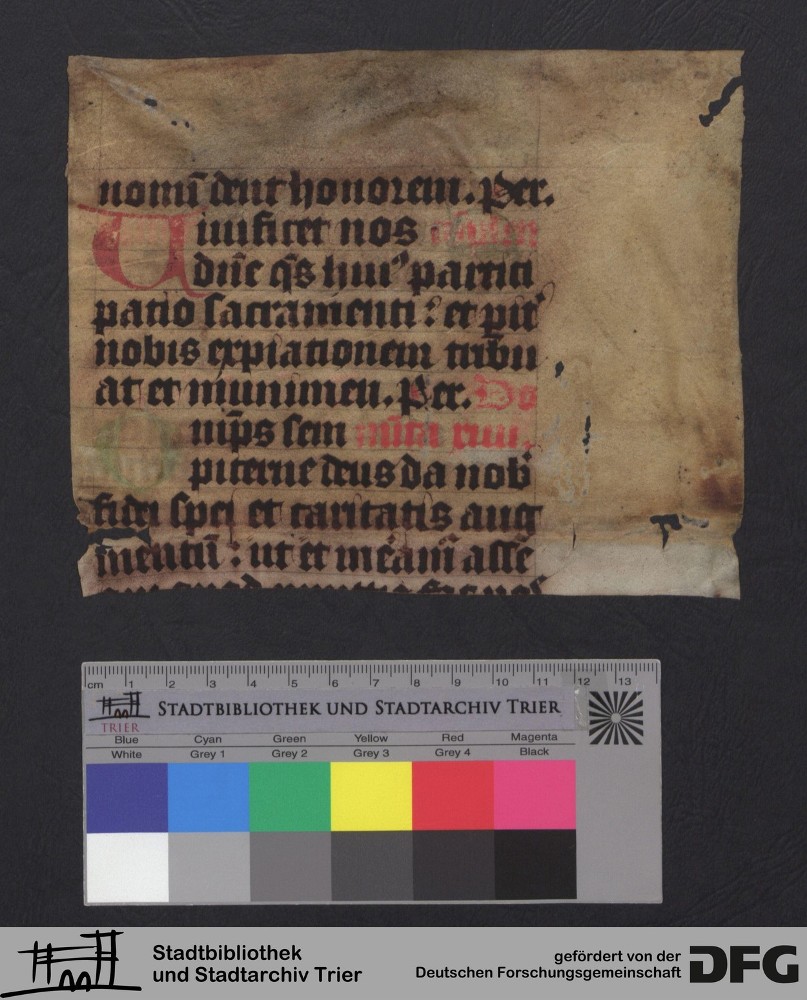 nomī dent honorem. Per.
Uiuificet nos
dn̄e q̄s huiꝰ partici
patio sacramenti: et pit̓
nobis expiationem tribu
at et munimen. Per. Do
Om̄ps sem mīca xiiii.
piterne deus da nob
fidei spei et caritatis aug
mentū: ut et meam̄ asse
cm
1 2 3 4 5 6 7 8 9 10 11 12 13
Stadtbibliothek und Stadtarchiv Trier
TRIER
Blue Cyan Green Yellow Red Magenta
White Grey 1 Grey 2 Grey 3 Grey 4 Black
Stadtbibliothek
und Stadtarchiv Trier
gefördert von der
Deutschen Forschungsgemeinschaft
DFG